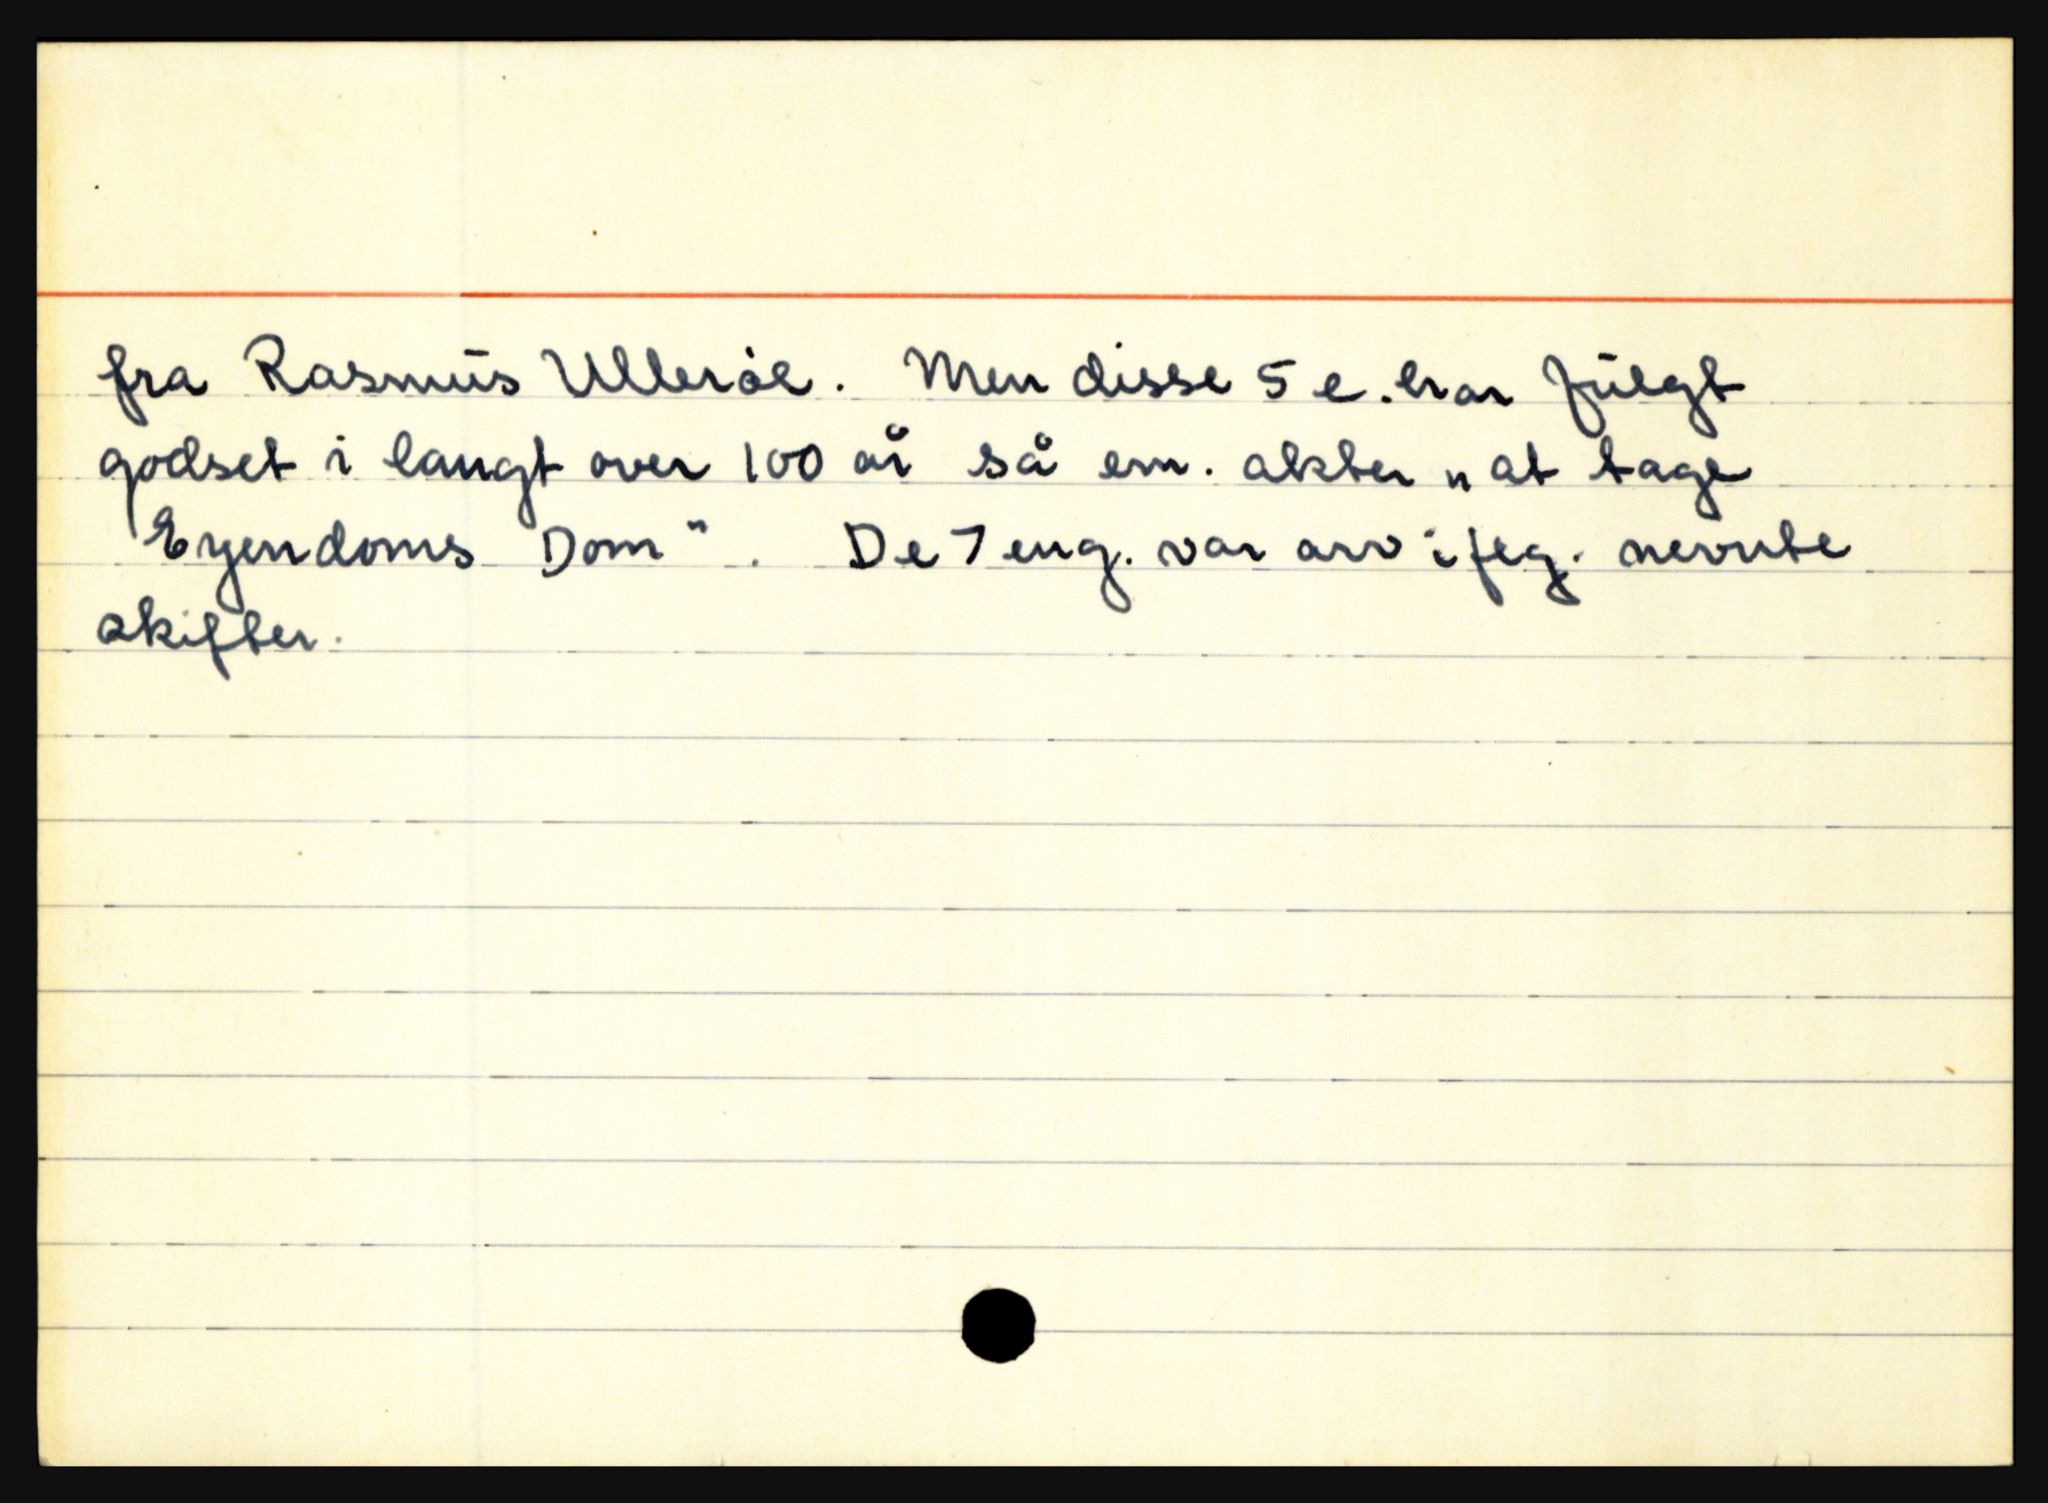 fra Rasmus Ullerøe. Men disse 5 e. har fulgt
godset i langt over 100 år så em. akter "at tage
Eyendoms Dom". De 7 eng. var arv i feg. nevnte
skifter.